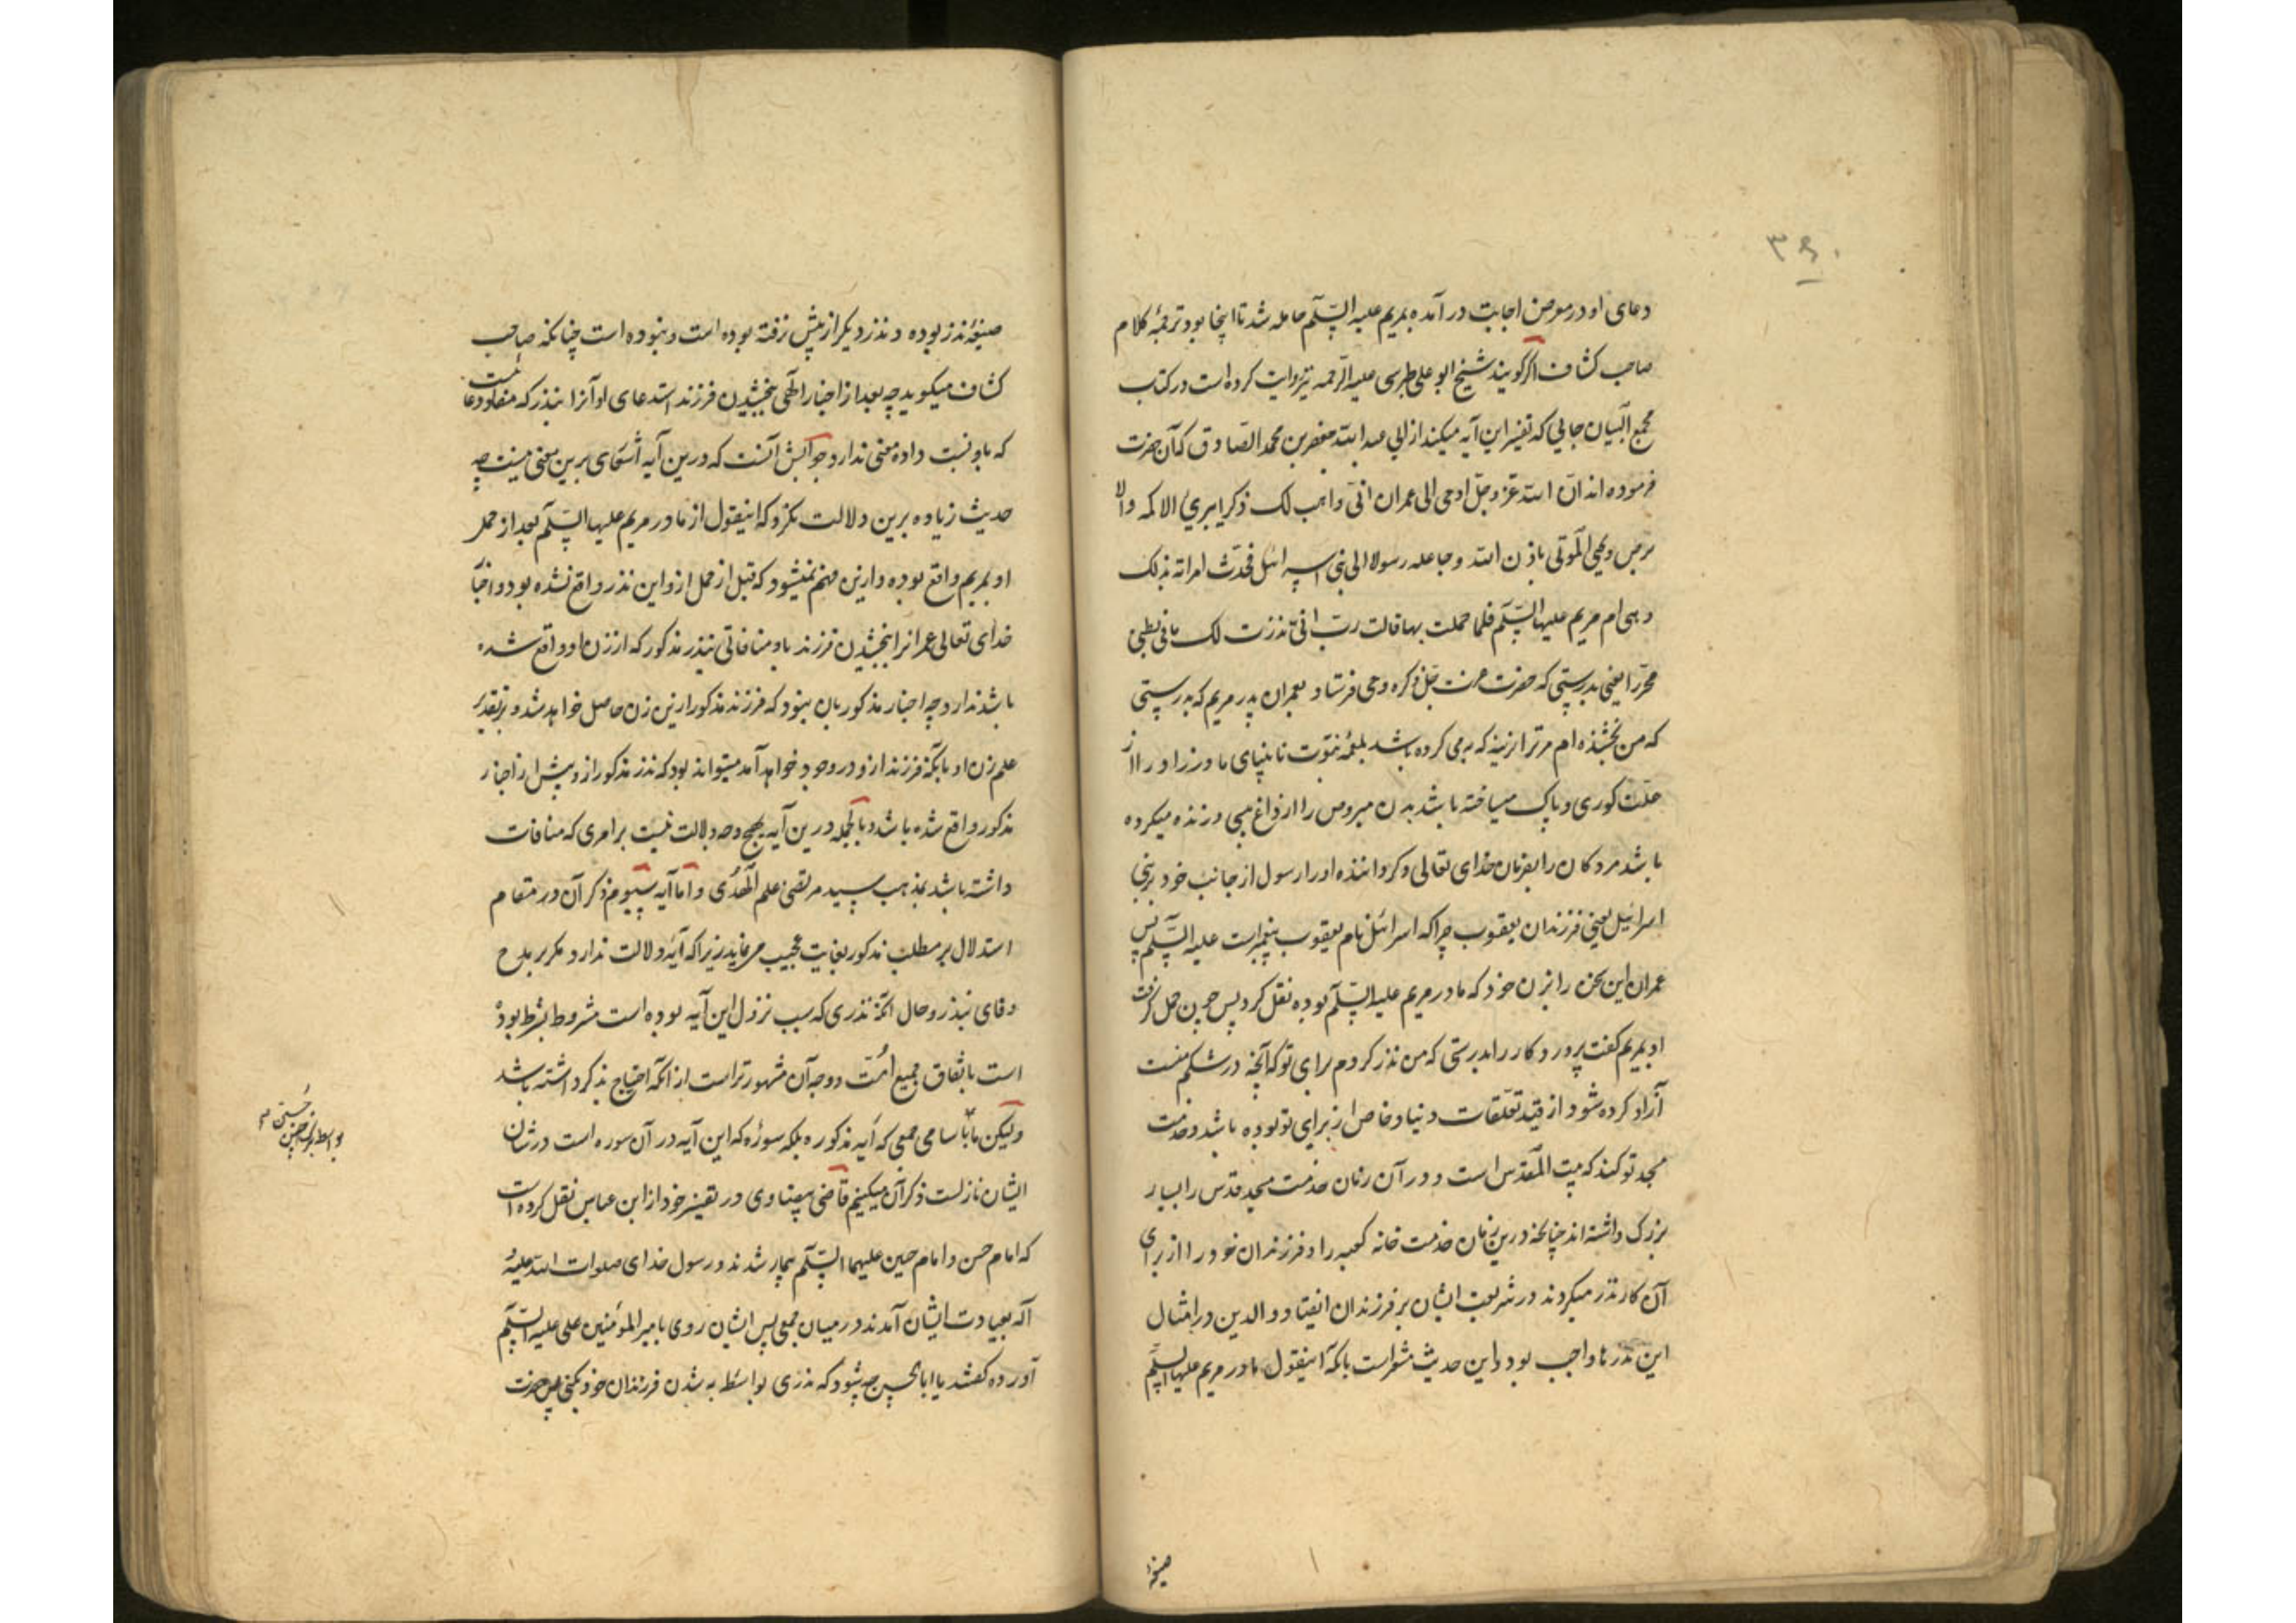 ۳۶۰
دعای او در معرض اجابت در آمده بمریم علیه السّلم حامله شد تا اینجا بود ترجمهٔ کلام
صاحب کشاف اگر گویند شیخ ابو علی طبرسی علیه الرّحمه نیز روایت کرده است در کتاب
مجمع البیان جایی که تفسیر این آیه میکند از ابی عبد الله جعفر بن محمد الصّادق که آن حضرت
فرموده اند انّ الله عزّ و جلّ اوحی الی عمران انّی واهب لک ذکرا یبریُ الاکمه و الا
برص و یحیی الموتی باذن الله و جاعله رسولا الی بنی اسرائیل فحدّث امراته بذلک
و هی ام مریم علیها السّلم فلما حملت بها قالت ربّ انّی نذرت لک ما فی بطنی
محرّرا یعنی بدرستی که حضرت عزت جلّ ذکره وحی فرستاد بعمران پدر مریم که بدرستی
که من بخشنده ام مر ترا نرینه که به می کرده باشد نابینای مادرزاد را از
علّت کوری و پاک میساخته باشد بدن مبروص را از داغ پیسی و زنده میکرده
باشد مردکان را بفرمان خدای تعالی و کرداننده او را رسول از جانب خود بر بنی
اسرائیل یعنی فرزندان یعقوب چرا که اسرائیل نام یعقوب پیغمبراست علیه السّلم پس
عمران این سخن را بزن خود که مادر مریم علیه السّلم بوده نقل کرد پس چون حمل گرفت
او بمریم کفت پرورد کار را بدرستی که من نذر کردم برای تو که آنچه در شکم منست
آزاد کرده شود از قید تعلّقات دنیا و خاص از برای تو بوده باشد و خدمت
مسجد تو کند که بیت المقدس است و در آن زمان خدمت مسجد قدس را بسیار
بزرک داشته اند چنانچه درین زمان خدمت خانه کعبه را و فرزندان خود را از برای
آن کار نذر میکردند و در شریعت ایشان بر فرزندان انقیاد والدین در امثال
این نذرها واجب بود و این حدیث مشعر است بانکه اینقول مادر مریم علیها السلم
صیغهٔ
صیغهٔ نذر بوده و نذر دیکر از پیش نرفته بوده است و نبوده است چنانکه صاحب
کشاف میکوید چه بعد از اخبار الهی ببخشیدن فرزند استدعای او آنرا بنذر که منفاد دعا ست
که باو نسبت داده معنی ندارد جوابش آنست که درین آیه اشعاری برین معنی نیست چه
حدیث زیاده برین دلالت نکرد که اینقول از مادر مریم علیها السّلم بعد از حمل
او بمریم واقع بوده و ازین فهم نمیشود که قبل از حمل ازو این نذر واقع نشده بود و اخبار
خدای تعالی عمرانرا ببخشیدن فرزند باو منافاتی بنذر مذکور که از زن او واقع شده
باشد ندارد چه اخبار مذکور بان نبود که فرزند مذکور ازین زن حاصل خواهد شد و بر تقدیر
علم زن او بآنکه فرزند ازو در وجود خواهد آمد میتواند بود که نذر مذکور ازو پیش از اخبار
مذکور واقع شده باشد و بالجمله درین آیه بهیچ وجه دلالت نیست بر امری که منافات
داشته باشد بمذهب سید مرتضی علم الهدی و امّا آیه سیوم ذکر آن در مقام
استدلال بر مطلب مذکور بغایت عجیب مینماید زیرا که آیه دلالت ندارد مکر بر مدح
وفای بنذر و حال آنکه نذری که سبب نزول این آیه بوده است مشروط بشرط بوده
است باتفاق جمیع اُمّت و وجه آن مشهورتر است از آنکه احتیاج بذکر داشته باشد
و لیکن ما باسامی جمعی که آیه مذکوره بلکه سورهٔ که این آیه در آن سوره است در شان
ایشان نازلست ذکر آن میکنیم قاضی بیضاوی در تفسیر خود از ابن عباس نقل کرده است
که امام حسن و امام حسین علیهما السّلم بیمار شدند و رسول خدای صلوات الله علیه و
آله بعیادت ایشان آمدند در میان جمعی پس ایشان روی بامیر المؤمنین علی علیه السّلم
آورده کفتند یا ابا الحسن چه شود که نذری بواسطه به شدن فرزندان خود بکنی پس حضرت